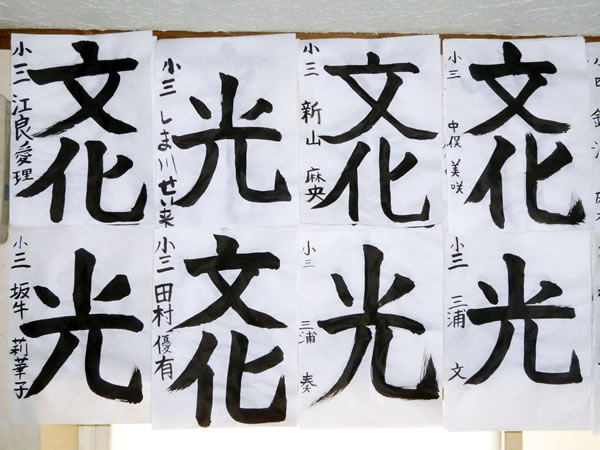 文化
小三 江良愛理
光
小三 しま川せい来
文化
小三 新山 麻央
文化
小三 中俣 美咲
光
小三 坂牛 莉華子
文化
小三 田村優有
光
小三 三浦 奏
光
小三 三浦 文